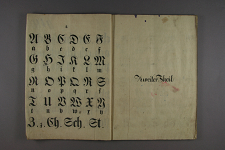 A B C D E F
a b c d e f
G H I K L M
g h i k l m
N O P Q R S
n o p q r s
T U V W X Y
t u v w x y
Z. z. Ch. Sch. St.
Zweiter Theil